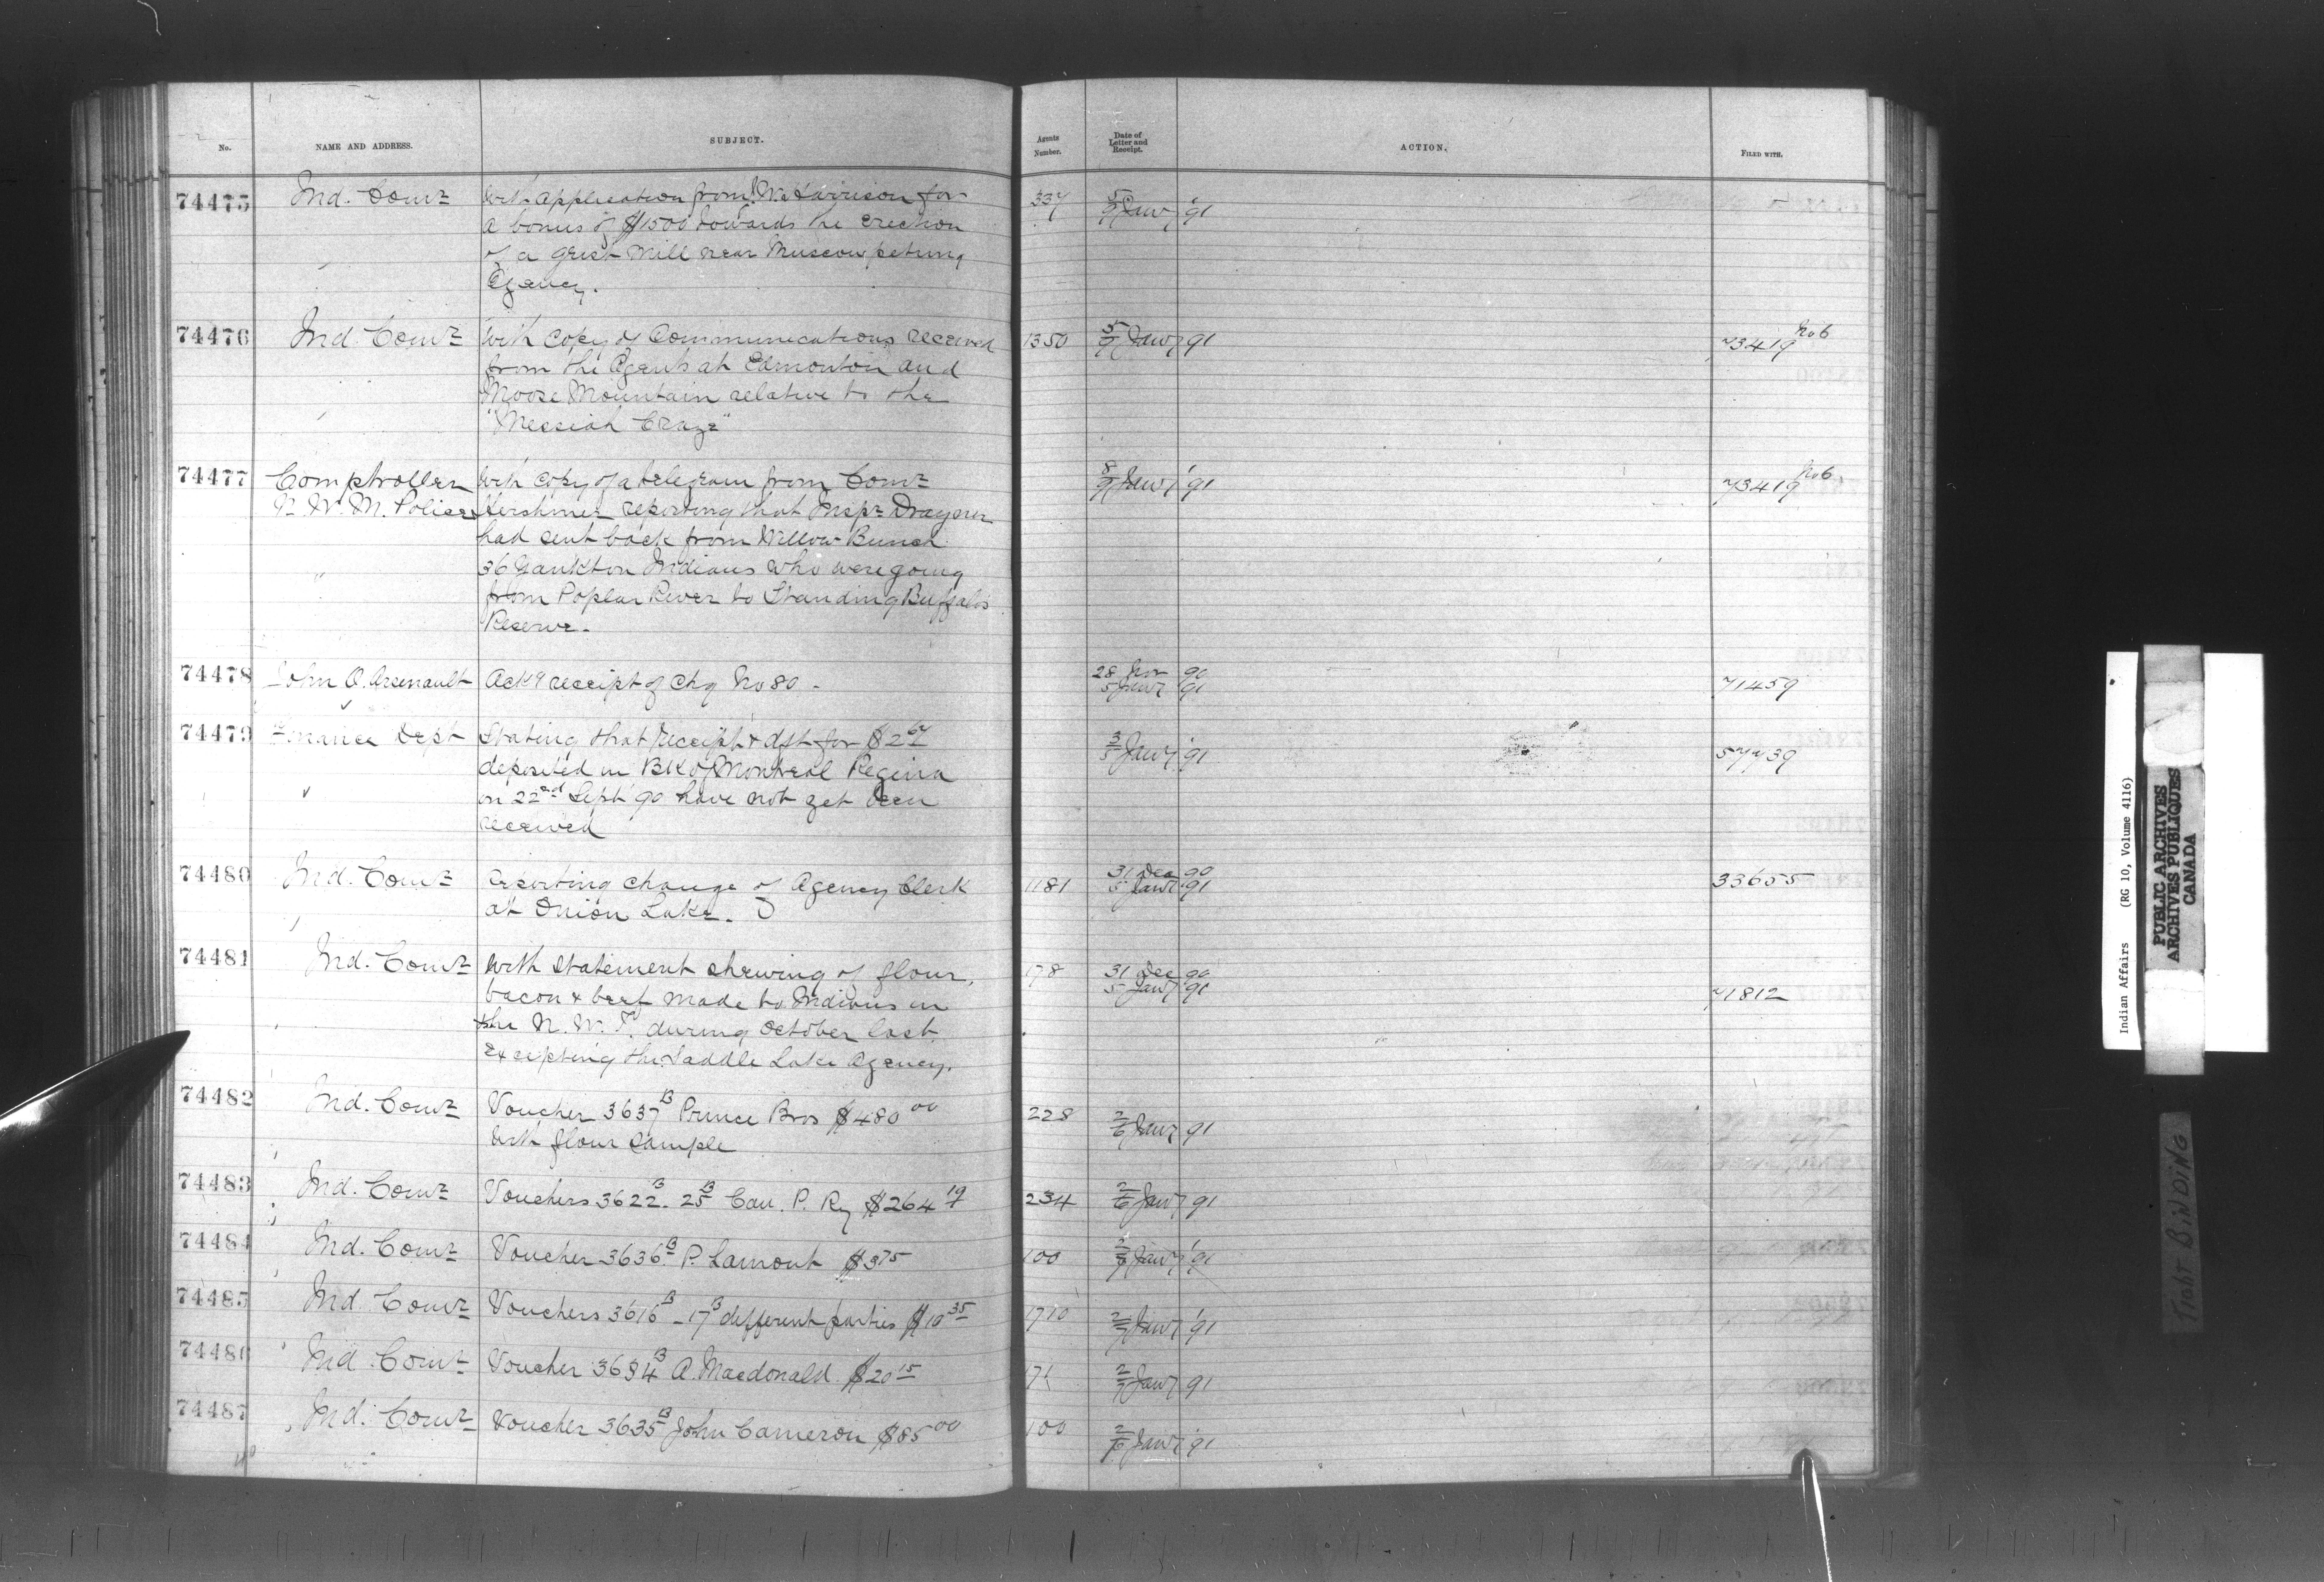 No.
NAME AND ADDRESS.
SUBJECT.
Agents Number.
Date of Letter and Receipt.
ACTION.
FILED WITH.
74475 Ind. Comr With application from Harrison for 337 5/7 Jany '91
a bonus of $1500 towards the erection
of a grist mill near Muscowpetung
Agency.
74476 Ind. Comr With copy of Communications received 1350 5/7 Jany 91 73419 No 6
from the Agents at Edmonton and
Moose Mountain relative to the
"Messiah Craze"
74477 Comptroller With copy of a telegram from Comr 8/9 Jany '91 73419 No 6.
N. W. M. Police Herchmer reporting that Inspr Drayner
had sent back from Willow Bunch
36 Yankton Indians who were going
from Poplar River to Standing Buffalo's
Reserve.
74478 John O. Arsenault Ackg receipt of chq No 80 - 28 Nov 90 71459
5 Jany 91
74479 Finance Dept Stating that receipt & dft for $2 67 3/5 Jany '91 57739
deposited in Bk of Montreal Regina
on 22nd Sept 90 have not yet been
received
74480 Ind. Comr Reporting change of Agency Clerk 1181 31 Dec 90 33655
at Onion Lake. 5 Jany 91
74481 Ind. Comr With statement shewing of flour, 178 31 Dec 90
bacon & beef made to Indians in 5 Jany 91 71812
the N. W. T. during October last,
Excepting the Saddle Lake Agency.
74482 Ind. Comr Voucher 3637 B Prince Bros $480 00 228 2/6 Jany 91
With flour sample
74483 Ind. Comr Vouchers 3622 B - 25 B Can. P. Ry $264 19 234 2/6 Jany 91
74484 Ind. Comr Voucher 3636 B P. Lamont $3 75 100 Jany '91
74485 Ind Comr Vouchers 3616 B - 17 B different parties $10 35 1710 Jany '91
74486 Ind. Comr Voucher 3634 B A. Macdonald $20 15 2/7 Jany 91
74487 Ind. Comr Voucher 3635 B John Cameron $85 00 100 Jany '91
Indian Affairs (RG 10, Volume 4116)
PUBLIC ARCHIVES
ARCHIVES PUBLIQUES
CANADA
Tight BiNDiNG